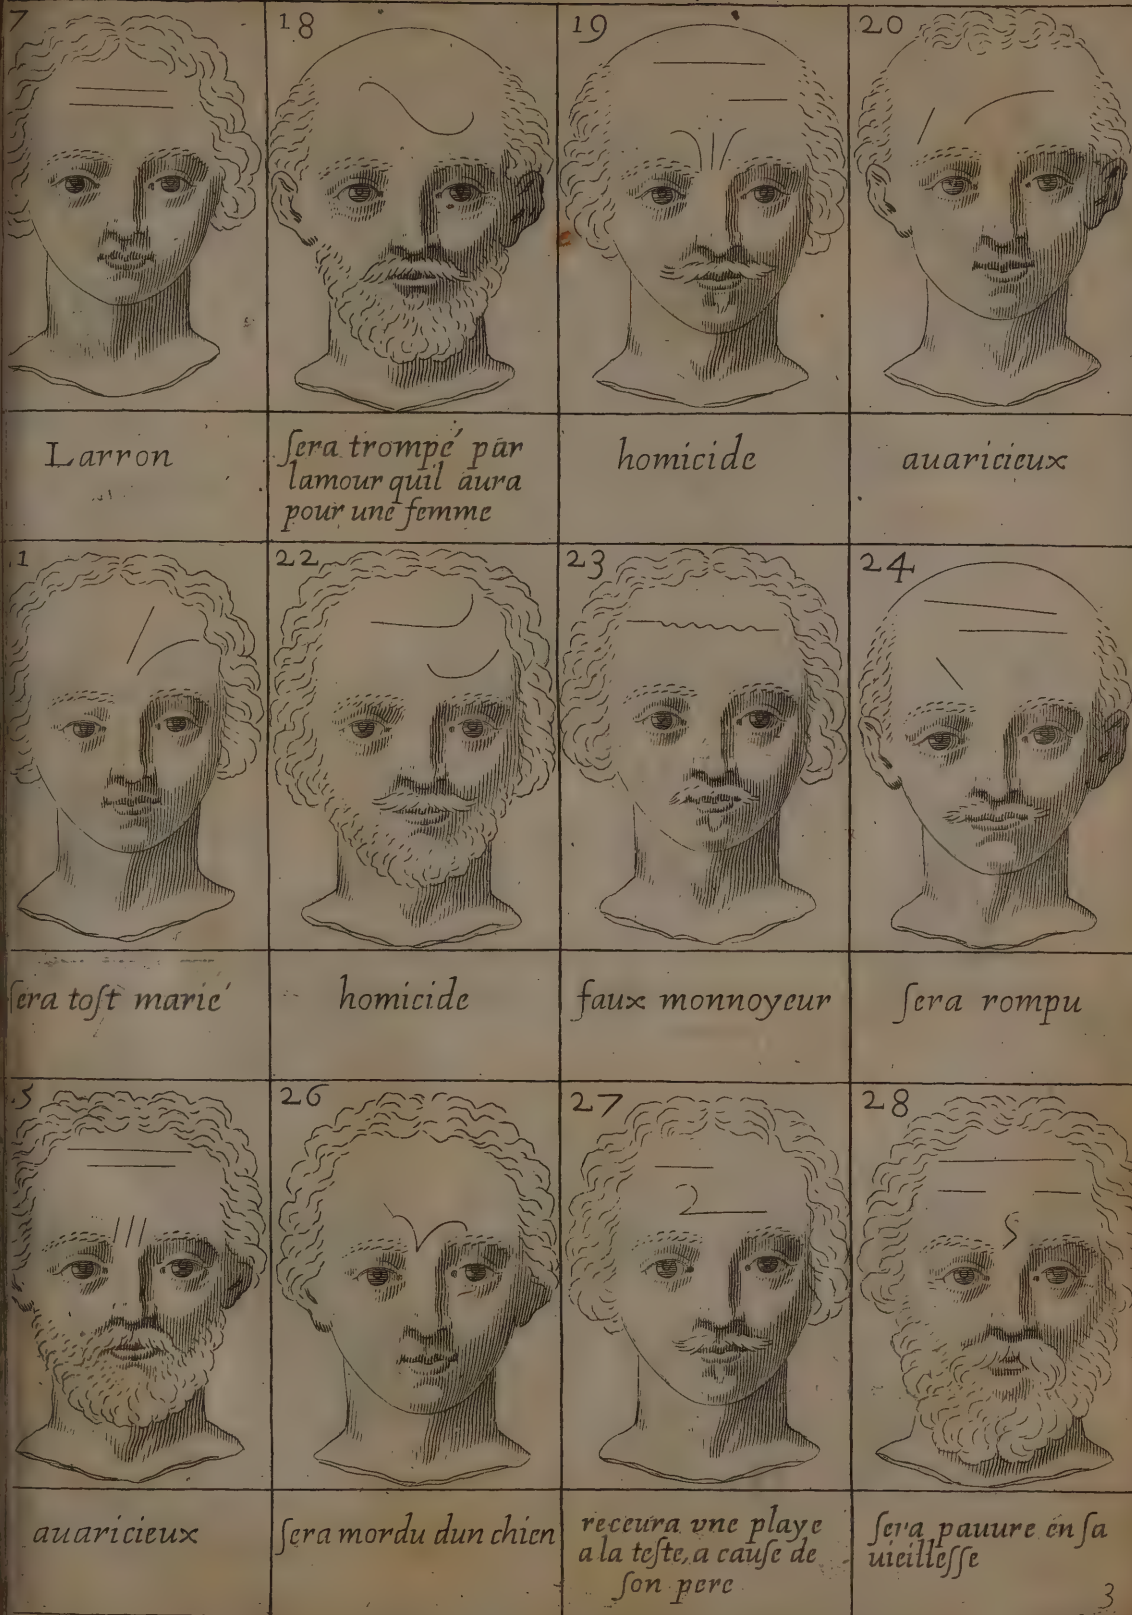 7 18 19 20
Larron
ſera trompé par
lamour quil aura
pour une femme
homicide
auaricieux
1 22 23 24
ſera toſt marié
homicide
faux monnoyeur
ſera rompu
5 26 27 28
auaricieux
ſera mordu dun chien
receura vne playe
a la teſte, a cauſe de
ſon pere
ſera pauure en ſa
uieilleſſe
3